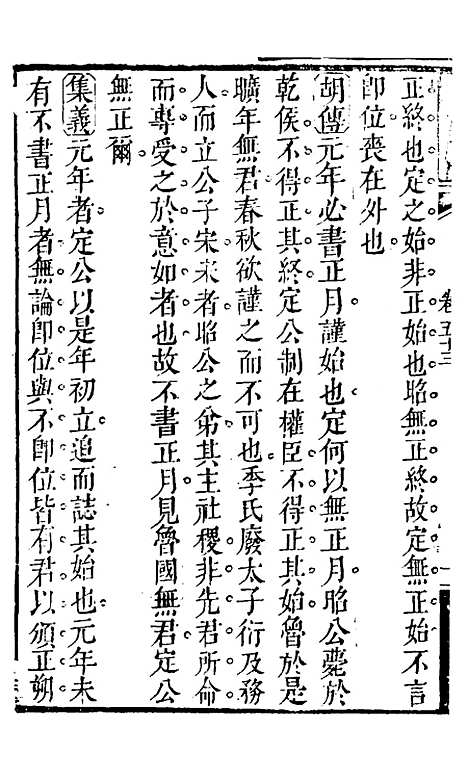 正終也定之始非正始也昭無正終故定無正始不言
卽位喪在外也
胡傳元年必書正月謹始也定何以無正月昭公薨於
乾侯不得正其終定公制在權臣不得正其始魯於是
曠年無君春秋欲謹之而不可也季氏廢太子衍及務
人而立公子宋宋者昭公之弟其主社稷非先君所命
而專受之於意如者也故不書正月見魯國無君定公
無正爾
集義元年者定公以是年初立追而誌其始也元年未
有不書正月者無論卽位與不卽位皆有君以頒正朔
卷五十三